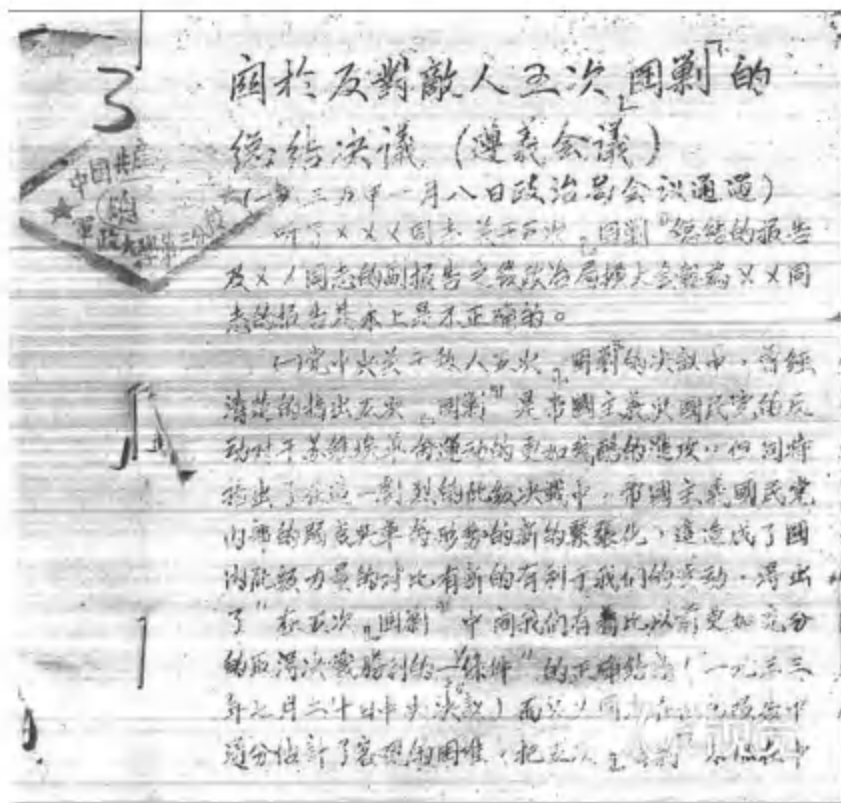 3
關於反對敵人五次「圍剿」的
總結決議(遵義会議)
(一九三五年一月八日政治局会议通過)
中国共産
軍政大學第三分校
听了×××同志关于五次「围剿」總結的报告
及××同志的副报告之後政治局擴大会認為××同
志的报告基本上是不正確的。
(一)党中央关于敌人五次「围剿」的决议中,曾經
清楚的指出五次「围剿」是帝國主義与國民党的反
动对于苏維埃革命運动的更加残酷的進攻,但同時
指出了在這一剧烈的阶级决战中,帝國主義國民党
内部的弱点与革命形势的新的緊張化,這造成了國
内阶級力量的对比有新的有利于我们的变动,得出
了"在五次「围剿」中间我们有着比以前更加充分
的取得决戰勝利的一条件"的正確結論(一九三三
年七月二十日中央决议)而××同志在他的报告中
过分估計了客观的困难,把五次「
A
1